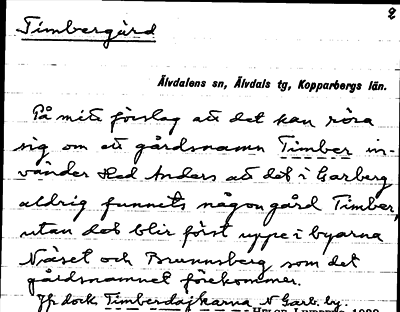 2
Timbergård
Älvdalens sn, Älvdals tg, Kopparbergs län.
På mitt förslag att det kan röra
sig om ett gårdsnamn Timber in-
vänder Hed Anders att det i Garberg
aldrig funnits någon gård Timber,
utan det blir först uppe i byarna
Näset och Brunnsberg som det
gårdsnamnet förekommer.
Jfr dock Timberdajkarna N Garb. by.